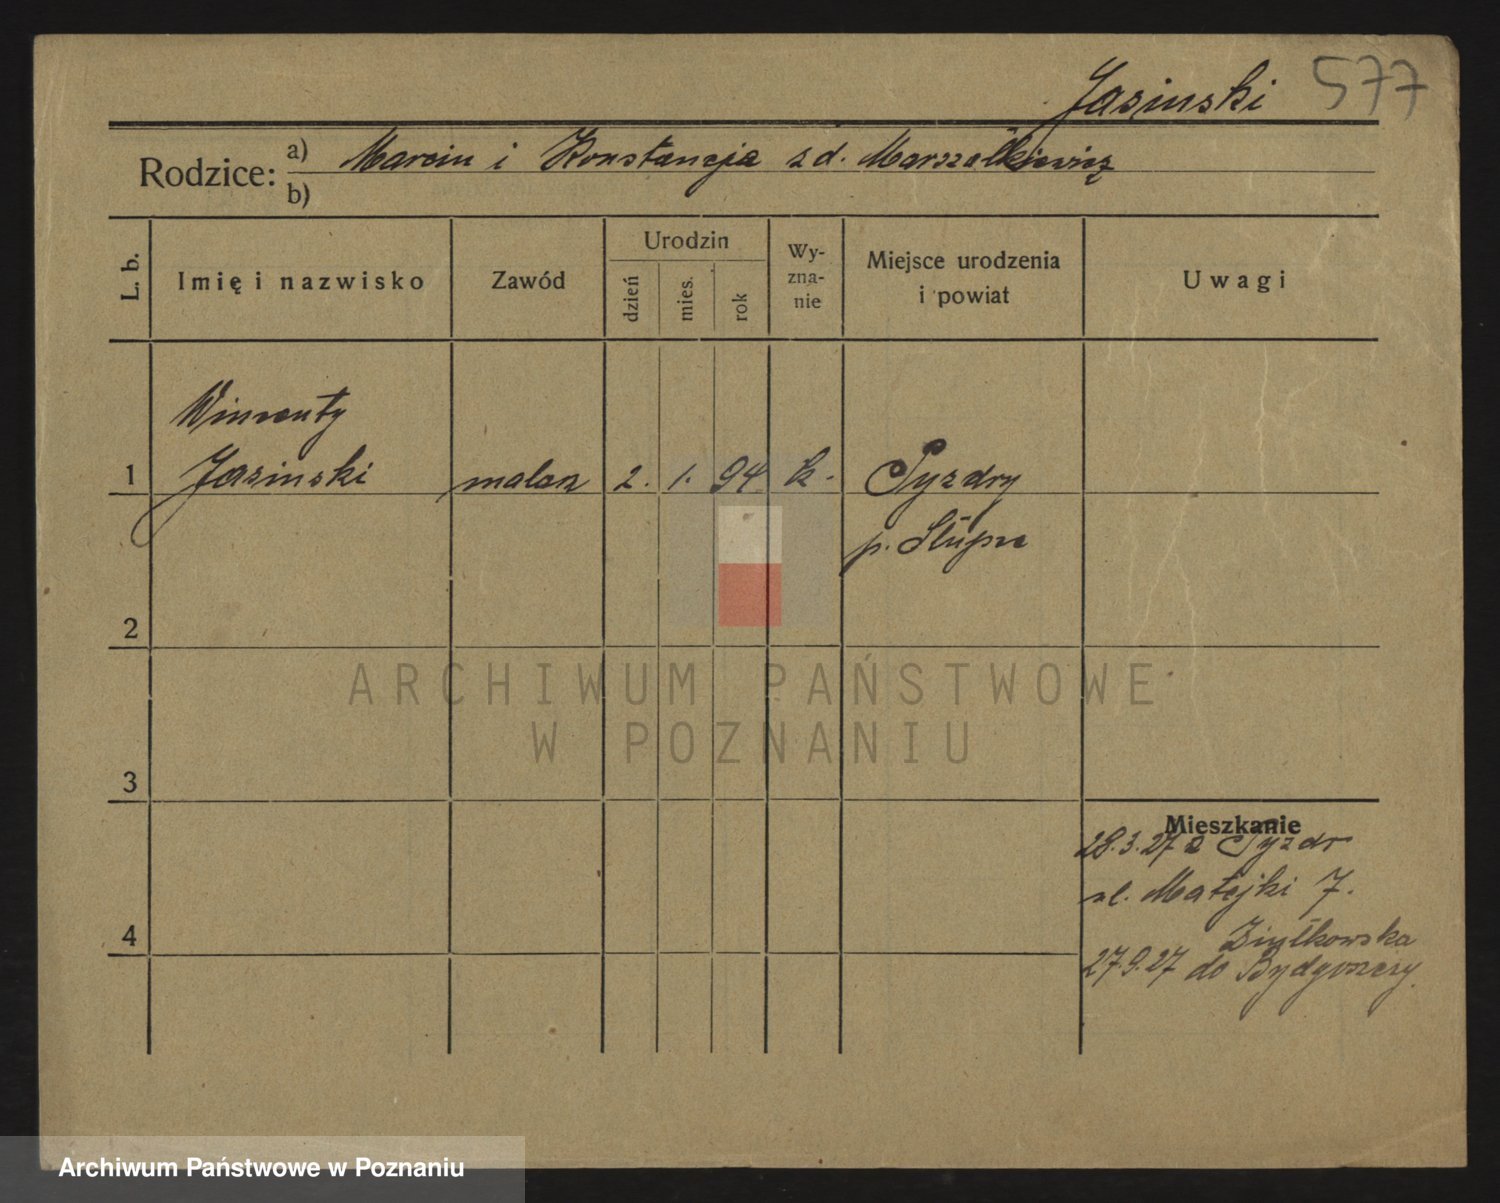 Jasinski 577
Rodzice: a) Marcin i Konstancja z d. Marszałkiewicz
b)
L. b.
Imię i nazwisko
Zawód
Urodzin
dzień
mies.
rok
Wy-
zna-
nie
Miejsce urodzenia
i powiat
Uwagi
Wincenty
1 Jasinski malarz 2. 1. 94 k. Pyzdry
p. Słupca
2
ARCHIWUM PAŃSTWOWE
W POZNANIU
3
Mieszkanie
28.3.27 z Pyzdr
ul. Matejki 7.
4
Ziułkowska
27.9.27 do Bydgoszczy.
Archiwum Państwowe w Poznaniu